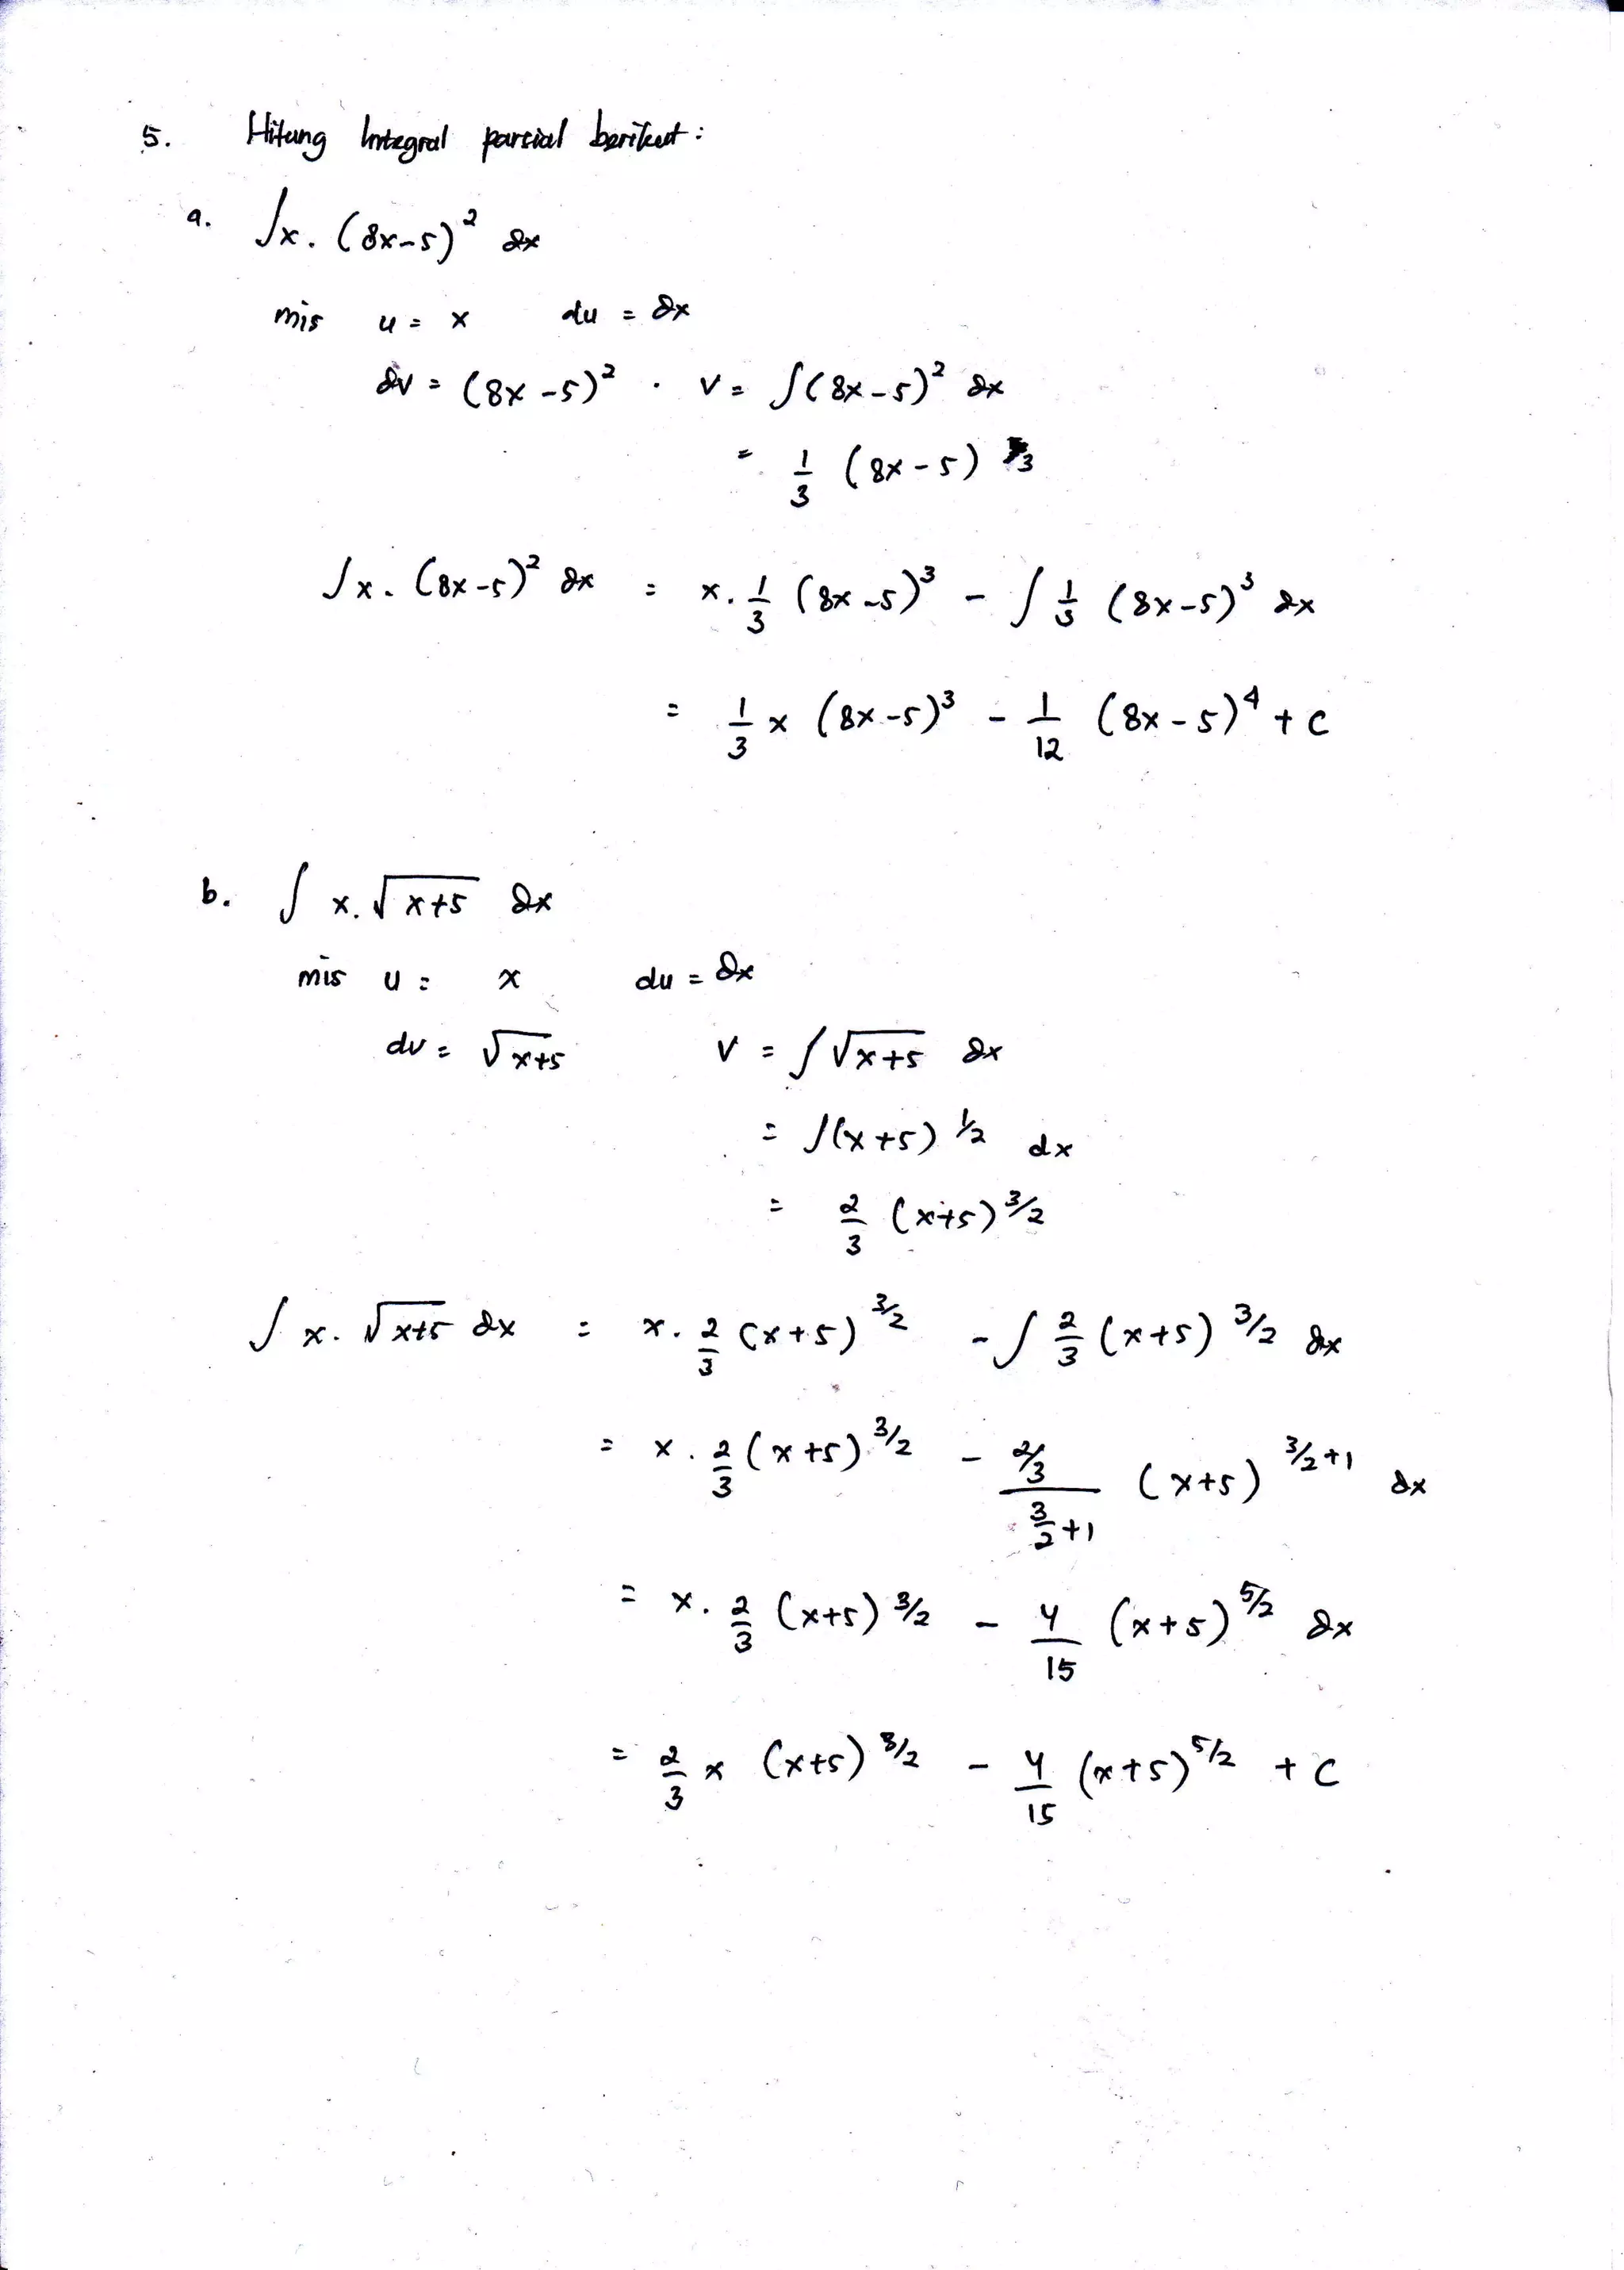 5. Hitung Integral parsial berikut :
a. ∫x. (8x-5)² dx
mis u = x du = dx
dv = (8x -5)² . v = ∫(8x-5)² dx
= 1/3 (8x-5) 3
∫x. (8x-5)² dx = x. 1/3 (8x-5)³ - ∫ 1/3 (8x-5)³ dx
= 1/3 x (8x-5)³ - 1/12 (8x-5)⁴ + c
b. ∫ x. √(x+5) dx
mis u = x du = dx
dv = √(x+5) v = ∫√(x+5) dx
= ∫(x+5) ^(1/2) dx
= 2/3 (x+5)^(3/2)
∫ x. √(x+5) dx = x. 2/3 (x+5)^(3/2) - ∫ 2/3 (x+5)^(3/2) dx
= x . 2/3 (x+5)^(3/2) - (2/3)/(3/2+1) (x+5)^(3/2+1) dx
= x. 2/3 (x+5)^(3/2) - 4/15 (x+5)^(5/2) dx
= 2/3 x (x+5)^(3/2) - 4/15 (x+5)^(5/2) + C